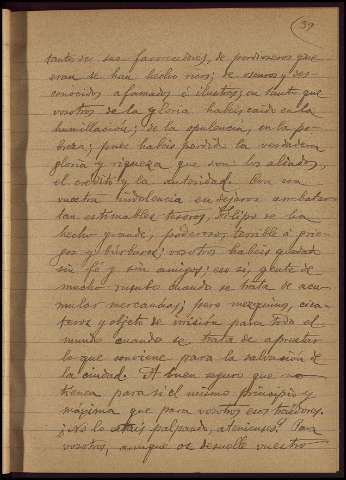 39
tantes su sus favorecidores, de pordioseros que
eran se han hecho ricos; de oscuros y des-
conocidos afamados é ilustres; en tanto que
vosotros de la gloria habeis caido en la
humillación; de la opulencia, en la po-
breza; pues habeis perdido la verdadera
gloria y riqueza que son los aliados,
el crédito y la autoridad. Con
vuestra indolencia en dejaros arrebatar
tan estimables tesoros, Filipo se ha
hecho grande, poderoso, terrible á grie-
gos y bárbaros; vosotros habeis quedado
sin fé y sin amigos; eso sí, gente de
mucho rumbo cuando se trata de acu-
mular mercancías; pero mezquinos,
y objeto de irrisión para todo el
mundo cuando se trata de aprestar
lo que conviene para la salvación de
la ciudad. A buen seguro que no
tienen para sí el mismo principio y
máxima que para vosotros esos traidores.
¿No lo estais palpando, atenienses? Para
vosotros, aunque os desuelle vuestro